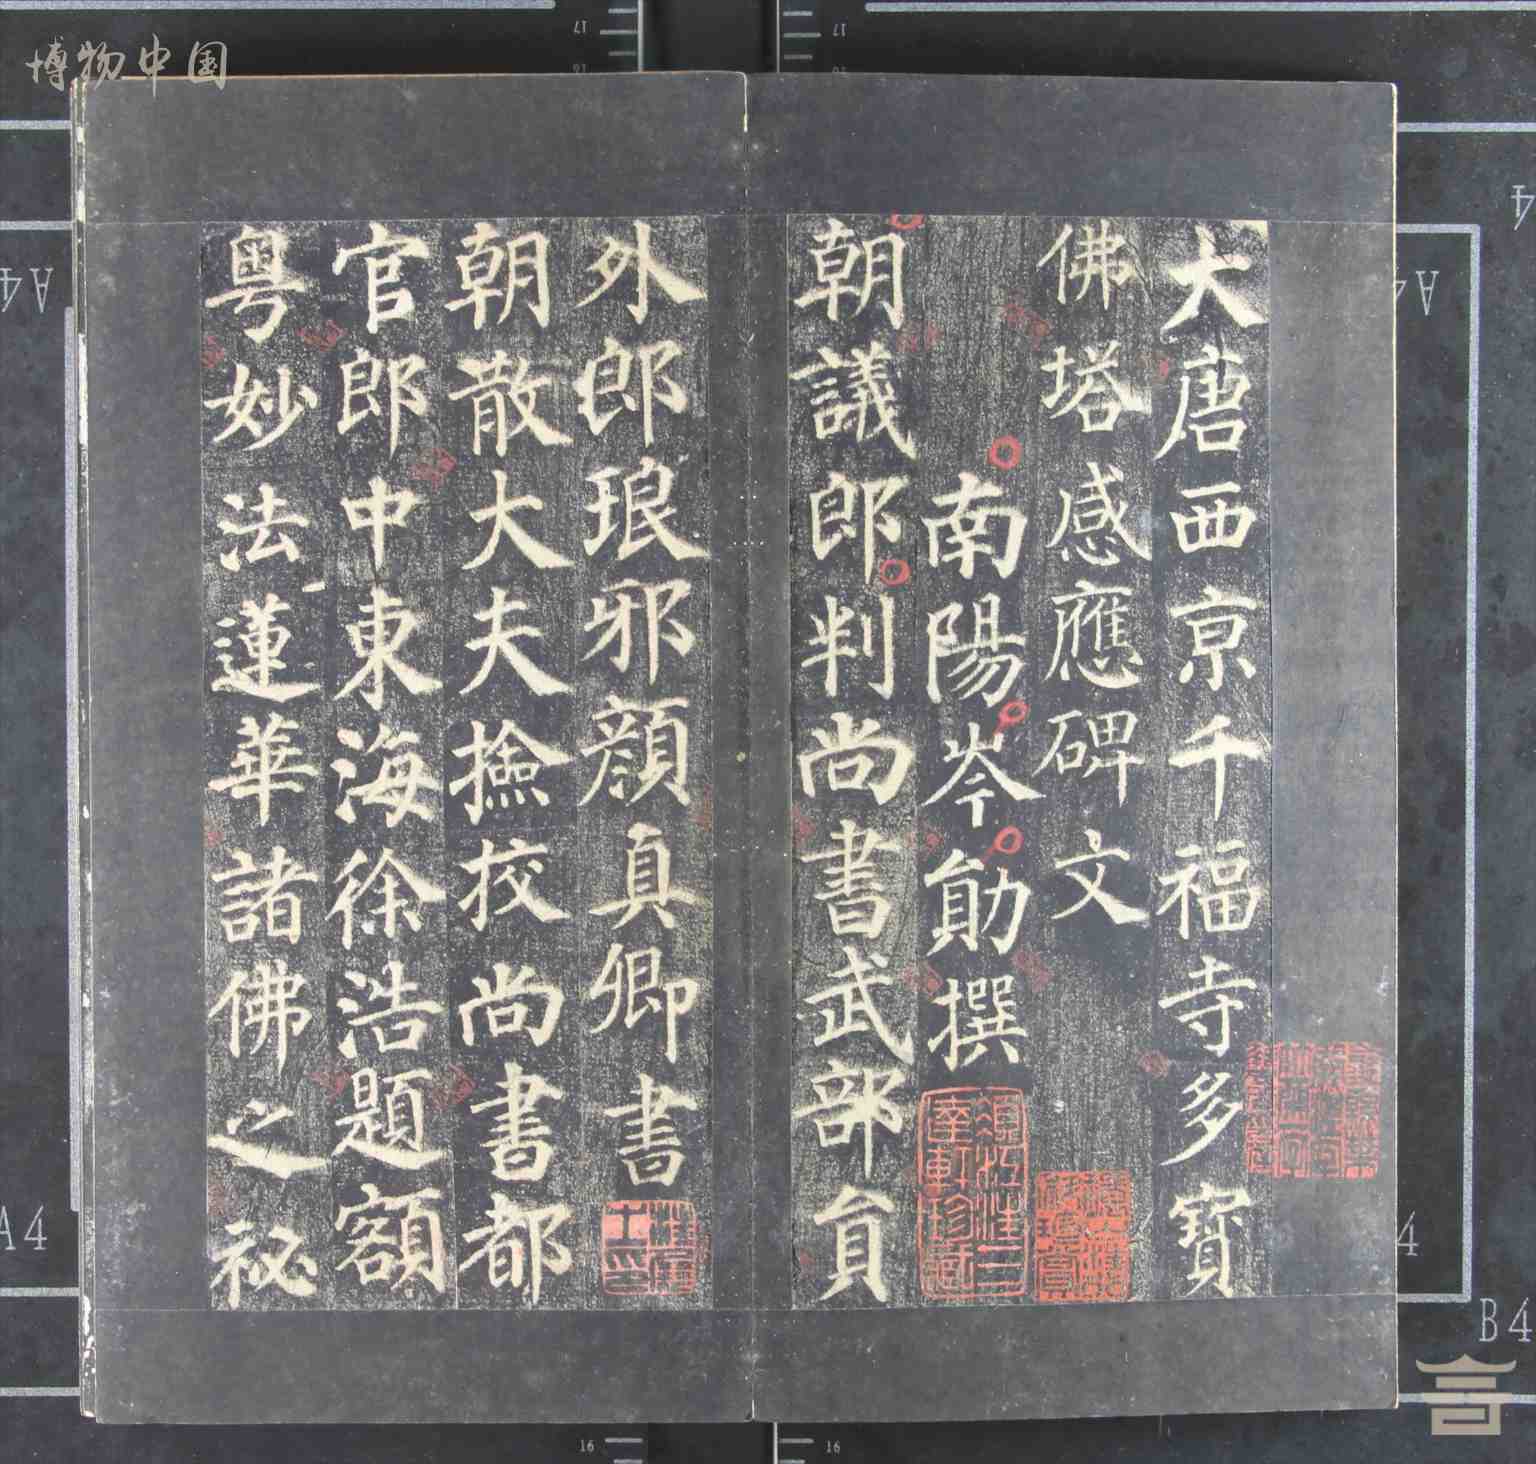 大唐西京千福寺多寶
佛塔感應碑文
南陽岑勛撰
朝議郎判尚書武部員
外郎琅邪顔真卿書
朝散大夫撿挍尚書都
官郎中東海徐浩題額
粤妙法蓮華諸佛之祕
博物中国
17
17
16
16
A4
A4
A4
4
4
B4